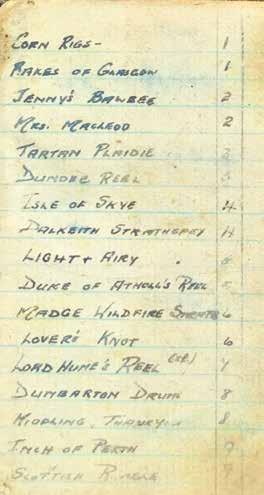 CORN RIGS - 1
RAKES OF GLASGOW 1
JENNY'S BAWBEE 2
MRS. MACLEOD 2
TARTAN PLAIDIE 3
DUNDEE REEL 3
ISLE OF SKYE 4
DALKEITH STRATHSPEY 4
LIGHT + AIRY 5
DUKE OF ATHOLL'S REEL 5
MADGE WILDFIRE STRATH 6
LOVER'S KNOT 6
LORD HUME'S REEL 7
DUMBARTON DRUMS 8
8
INCH OF PERTH 9
SCOTTISH 9